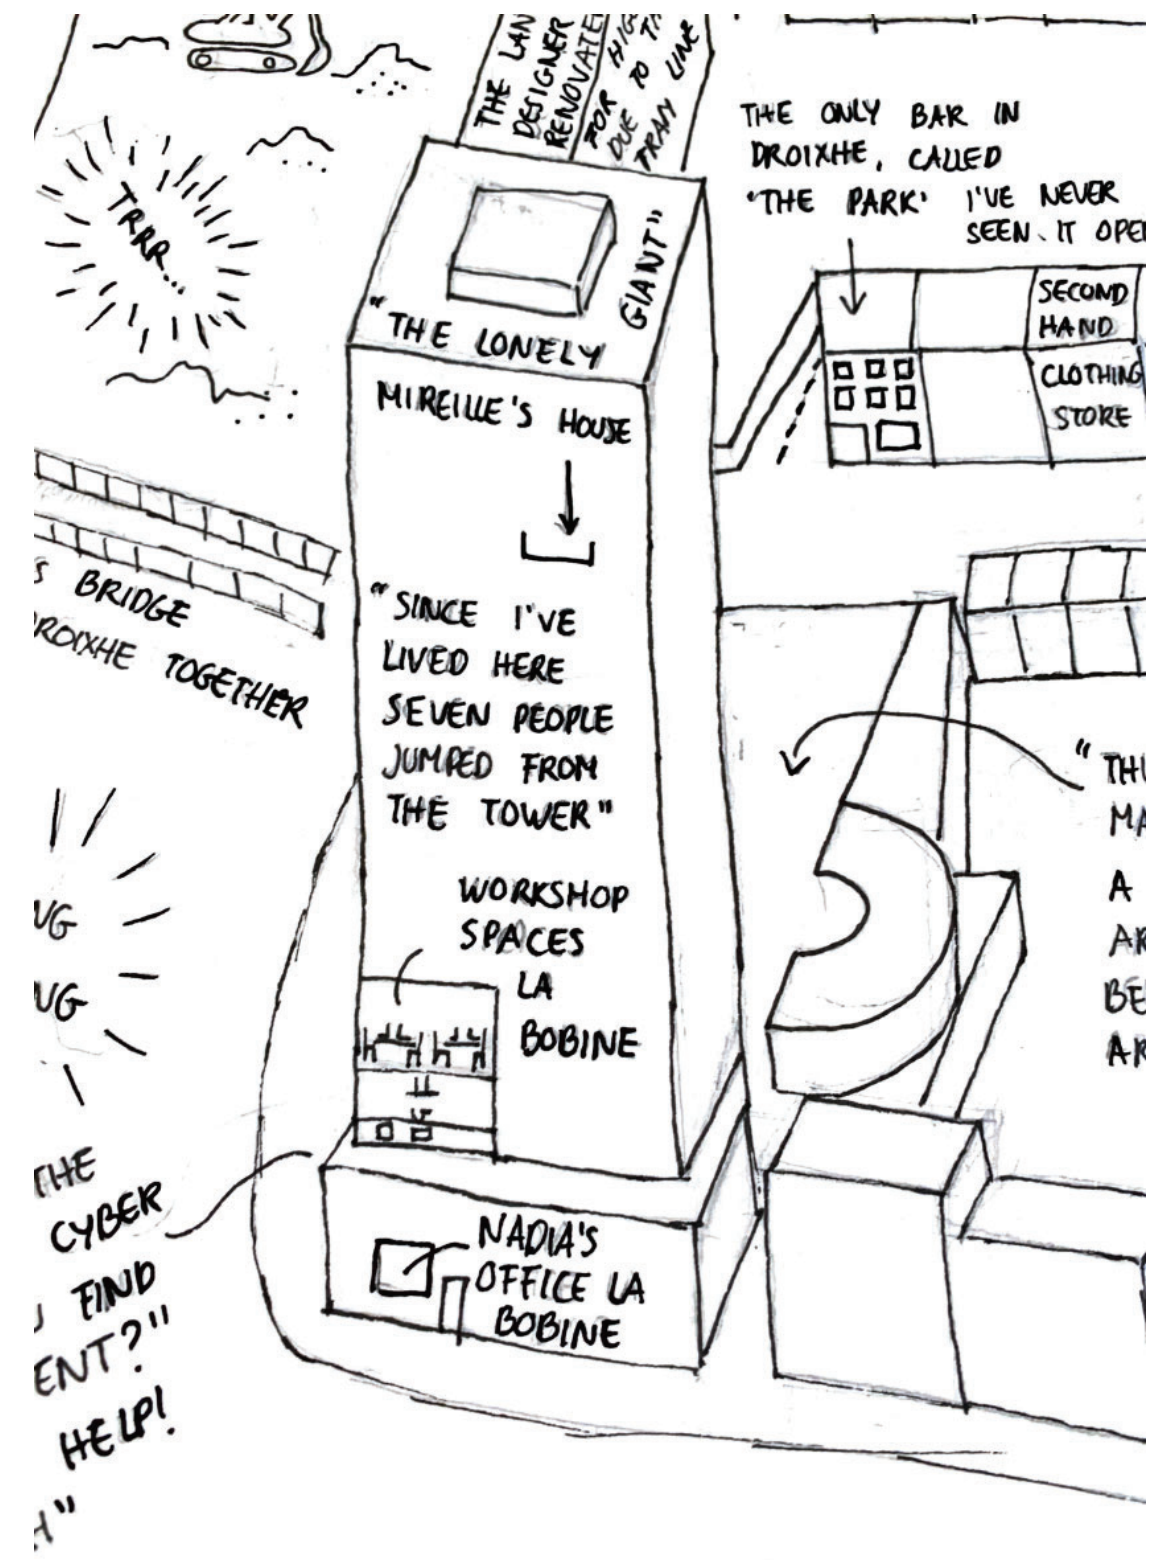 THE LAN
DESIGNER
RENOVATE
FOR HIG
DUE TO T
TRAM LINE
TRRR...
THE ONLY BAR IN
DROIXHE, CALLED
"THE PARK" I'VE NEVER
SEEN IT OPE
SECOND
HAND
CLOTHING
STORE
"THE LONELY
GIANT"
MIREILLE'S HOUSE
S BRIDGE
ROIXHE TOGETHER
"SINCE I'VE
LIVED HERE
SEVEN PEOPLE
JUMPED FROM
THE TOWER"
"TH
MA
A
AR
BE
AR
WORKSHOP
SPACES
LA
BOBINE
NG
NG
THE
CYBER
FIND
ENT?"
HELP!
H"
NADIA'S
OFFICE LA
BOBINE